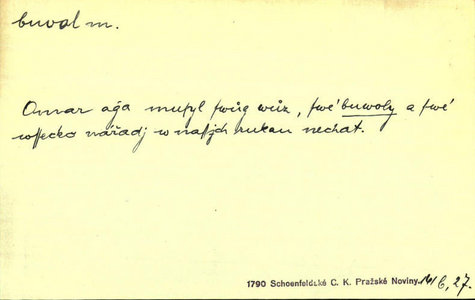 buvol m.
Omar aǧa musyl swůg wůz, swé buwoly a swé
wssecko nářadj w nassjch rukau nechat.
1790 Schoenfeldské C. K. Pražské Noviny. 6, 27.